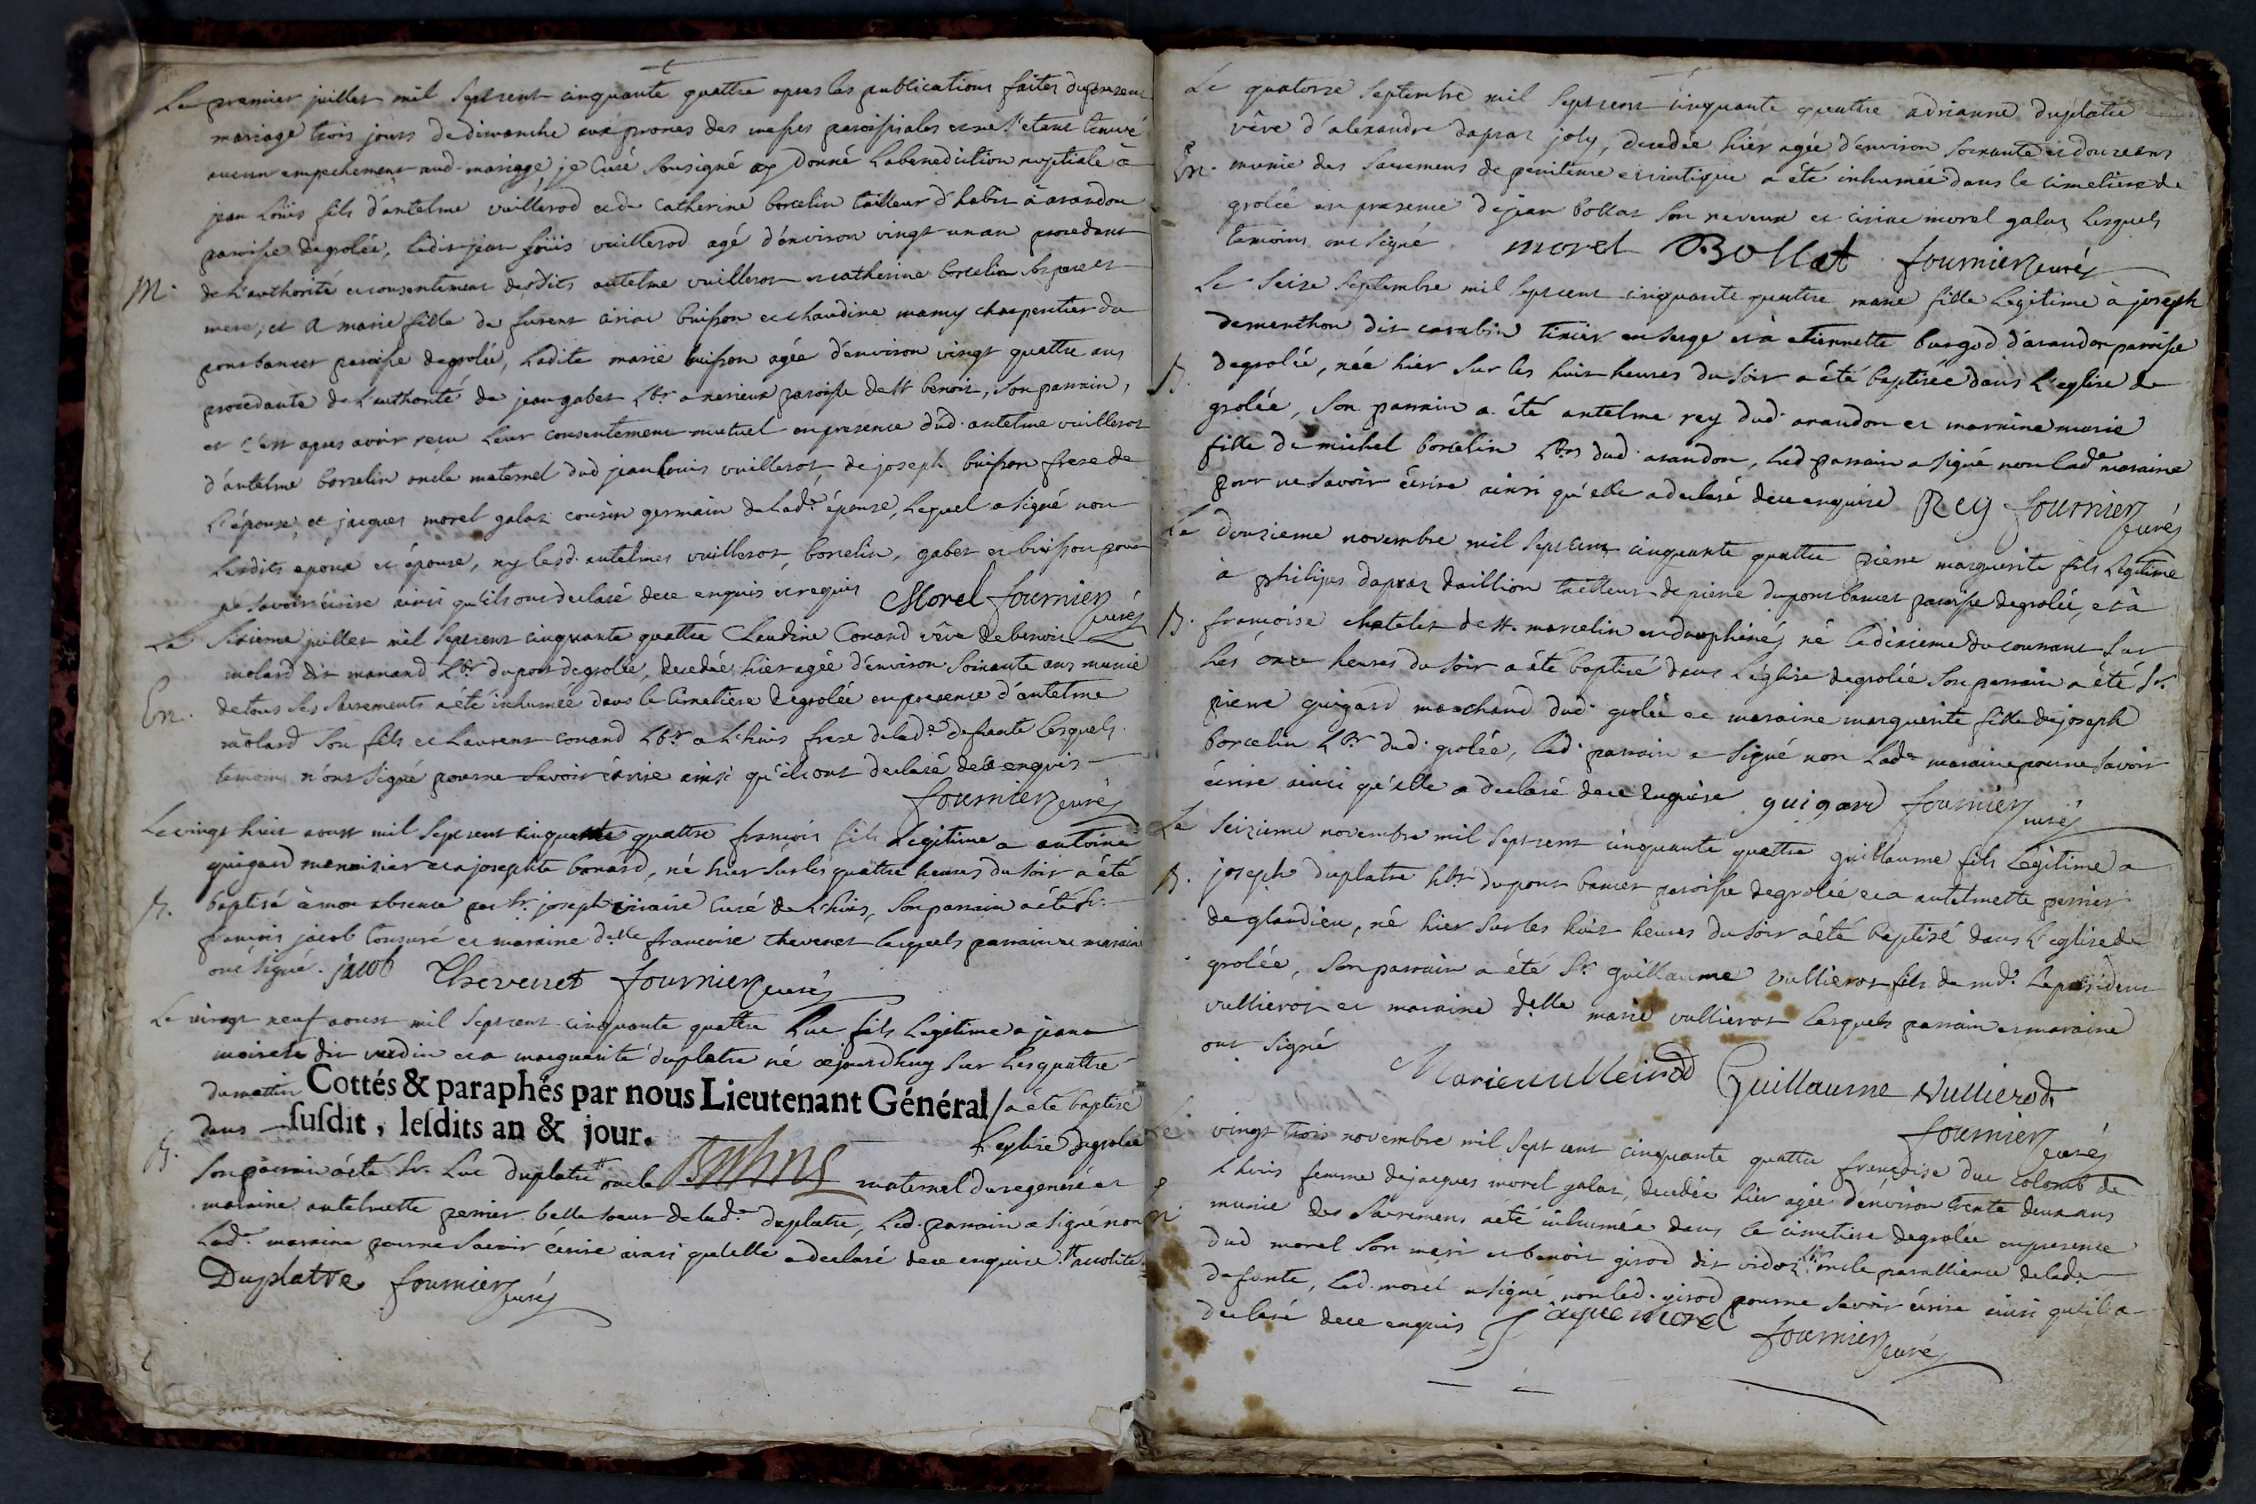 Le premier juillet mil sept cent cinquante quattre apres les publications faites du present
mariage trois jours de dimanche aux prones des messes paroissiales et ne s'etant trouvé
aucun empechement aud. mariage, je Curé sousigné ay donné la benediction nuptiale à
jean Loüis fils d'antelme vuillerod et de Catherine borcelin tailleur d'habit à arandon
paroisse de grolée, ledit jean Loüis vuillerod agé d'environ vingt un an procedant
M. de l'authorité et consentement desdits antelme vuillerot et catherine borcelin ses pere et
mere, et a marie fille de furent buisson et claudine mamy charpentier du
pont bancet paroisse de grolée, ladite marie buisson agée d'environ vingt quattre ans
procedante de l'authorité de jean gabet Lbr. a paroisse de St benoit, son parrain,
et c'est apres avoir reçu leur consentement mutuel en presence dud. antelme vuillerot
d'antelme borcelin oncle maternel dud jean louis vuillerot, de joseph buisson frere de
l'épouse, et jacques morel galaz cousin germain de lad.e épouse, lequel a signé non
lesdits epoux et épouse, ny lesd. antelmes vuillerot, borcelin, gabet et buisson pour
ne savoir écrire ainsi qu'ils ont declaré de ce enquis et requis Morel fournier
curé
Le sixieme juillet mil sept cent cinquante quattre Claudine Conand vêve de benoit
molard dit manand Lbr. du port de grolée, decedée hier agée d'environ soixante ans munie
En. de tous ses sacrements a été inhumée dans le cimetiere de grolée en presence d'antelme
molard son fils et Laurent conand Lbr a Lhuis frere de lad.e defunte lesquels
temoins n'ont signé pour ne savoir écrire ainsi qu'ils ont declaré de ce enquis
fournier curé
Le vingt huit aoust mil sept cent cinquante quattre françois fils legitime a antoine
guigard menuisier et a josephte bonard, né hier sur les quattre heures du soir a été
B. baptisé à mon absence par Sr. joseph curé de Lhuis, son parrain a été Sr.
françois jacob tonsuré et maraine d.elle francoise thevenet lesquels parrain et maraine
ont signé. jacob Thevenet fournier curé
Le vingt neuf aoust mil sept cent cinquante quattre Luc fils Legitime a jean
dit verdin et a marguerite duplatre né aujourdhuy sur les quattre
du mattin Cottés & paraphés par nous Lieutenant Général / a été baptisé
dans susdit, lesdits an & jour. l'eglise de grolée
B. son parrain a été Sr. Luc duplatre # oncle maternel du regeneré et
maraine antelmette perrier belle soeur de lad.e duplatre, led. parrain a signé non
lad.e maraine pour ne savoir écrire ainsi qu'elle a declaré de ce enquise. # accolite
Duplatre fournier curé
Le quatorze septembre mil sept cent cinquante quattre adrianne duplatre
vêve d'alexandre dapraz joly, decedée hier agée d'environ soixante et douze ans
En. munie des sacremens de penitence et viatique a été inhumée dans le cimetiere de
grolée en presence de jean bollat son neveux et morel galaz lesquels
temoins ont signé morel Bollat fournier curé
Le seize septembre mil sept cent cinquante quattre marie fille legitime à joseph
demanthon dit carabin tixier en serge et à etiennette burgod d'arandon paroisse
B. de grolée, née hier sur les huit heures du soir a été baptisée dans l'eglise de
grolée, son parrain a été antelme rey dud. arandon et marraine marie
fille de michel borcelin Lbrs dud. arandon, led parrain a signé non lad.e maraine
pour ne savoir écrire ainsi qu'elle a declaré de ce enquise Rey fournier
curé
Le douzieme novembre mil sept cent cinquante quattre pierre marguerite fils legitime
à philipes dapraz daillion tailleur de pierre du pont bancet paroisse de grolée, et à
B. françoise chatelet de St. marcelin en dauphiné, né le dixieme du courrant sur
les onze heures du soir a été baptisé dans l'église de grolée son parrain a été Sr.
pierre guigard marchand dud. grolée et maraine marguerite fille de joseph
borcelin Lbr dud. grolée, led. parrain a signé non lad.e maraine pour ne savoir
écrire ainsi qu'elle a declaré de ce enquise guigard fournier curé
Le seizieme novembre mil sept cent cinquante quattre guillaume fils legitime a
B. joseph duplatre Lbr du pont bancet paroisse de grolée et a antelmette perrier
de glandieu, né hier sur les huit heures du soir a été baptisé dans l'eglise de
grolée, son parrain a été Sr. guillaume vullierot fils de md. le president
vullierot et maraine d.elle marie vullierot lesquels parrain et maraine
ont signé
Marie vulleirod Guillaume Vullierod
fournier curé
Le vingt trois novembre mil sept cent cinquante quattre françoise duc Colomb de
Lhuis femme de jacques morel galaz, decedée hier agée d'environ trente deux ans
munie des sacremens a été inhumée dans le cimetiere de grolée en presence
dud morel son mari et benoit girod dit vidoz Lbr oncle par alliance de lad.
defunte, led. morel a signé non led. girod pour ne savoir écrire ainsi qu'il a
declaré de ce enquis Jaque morel fournier curé